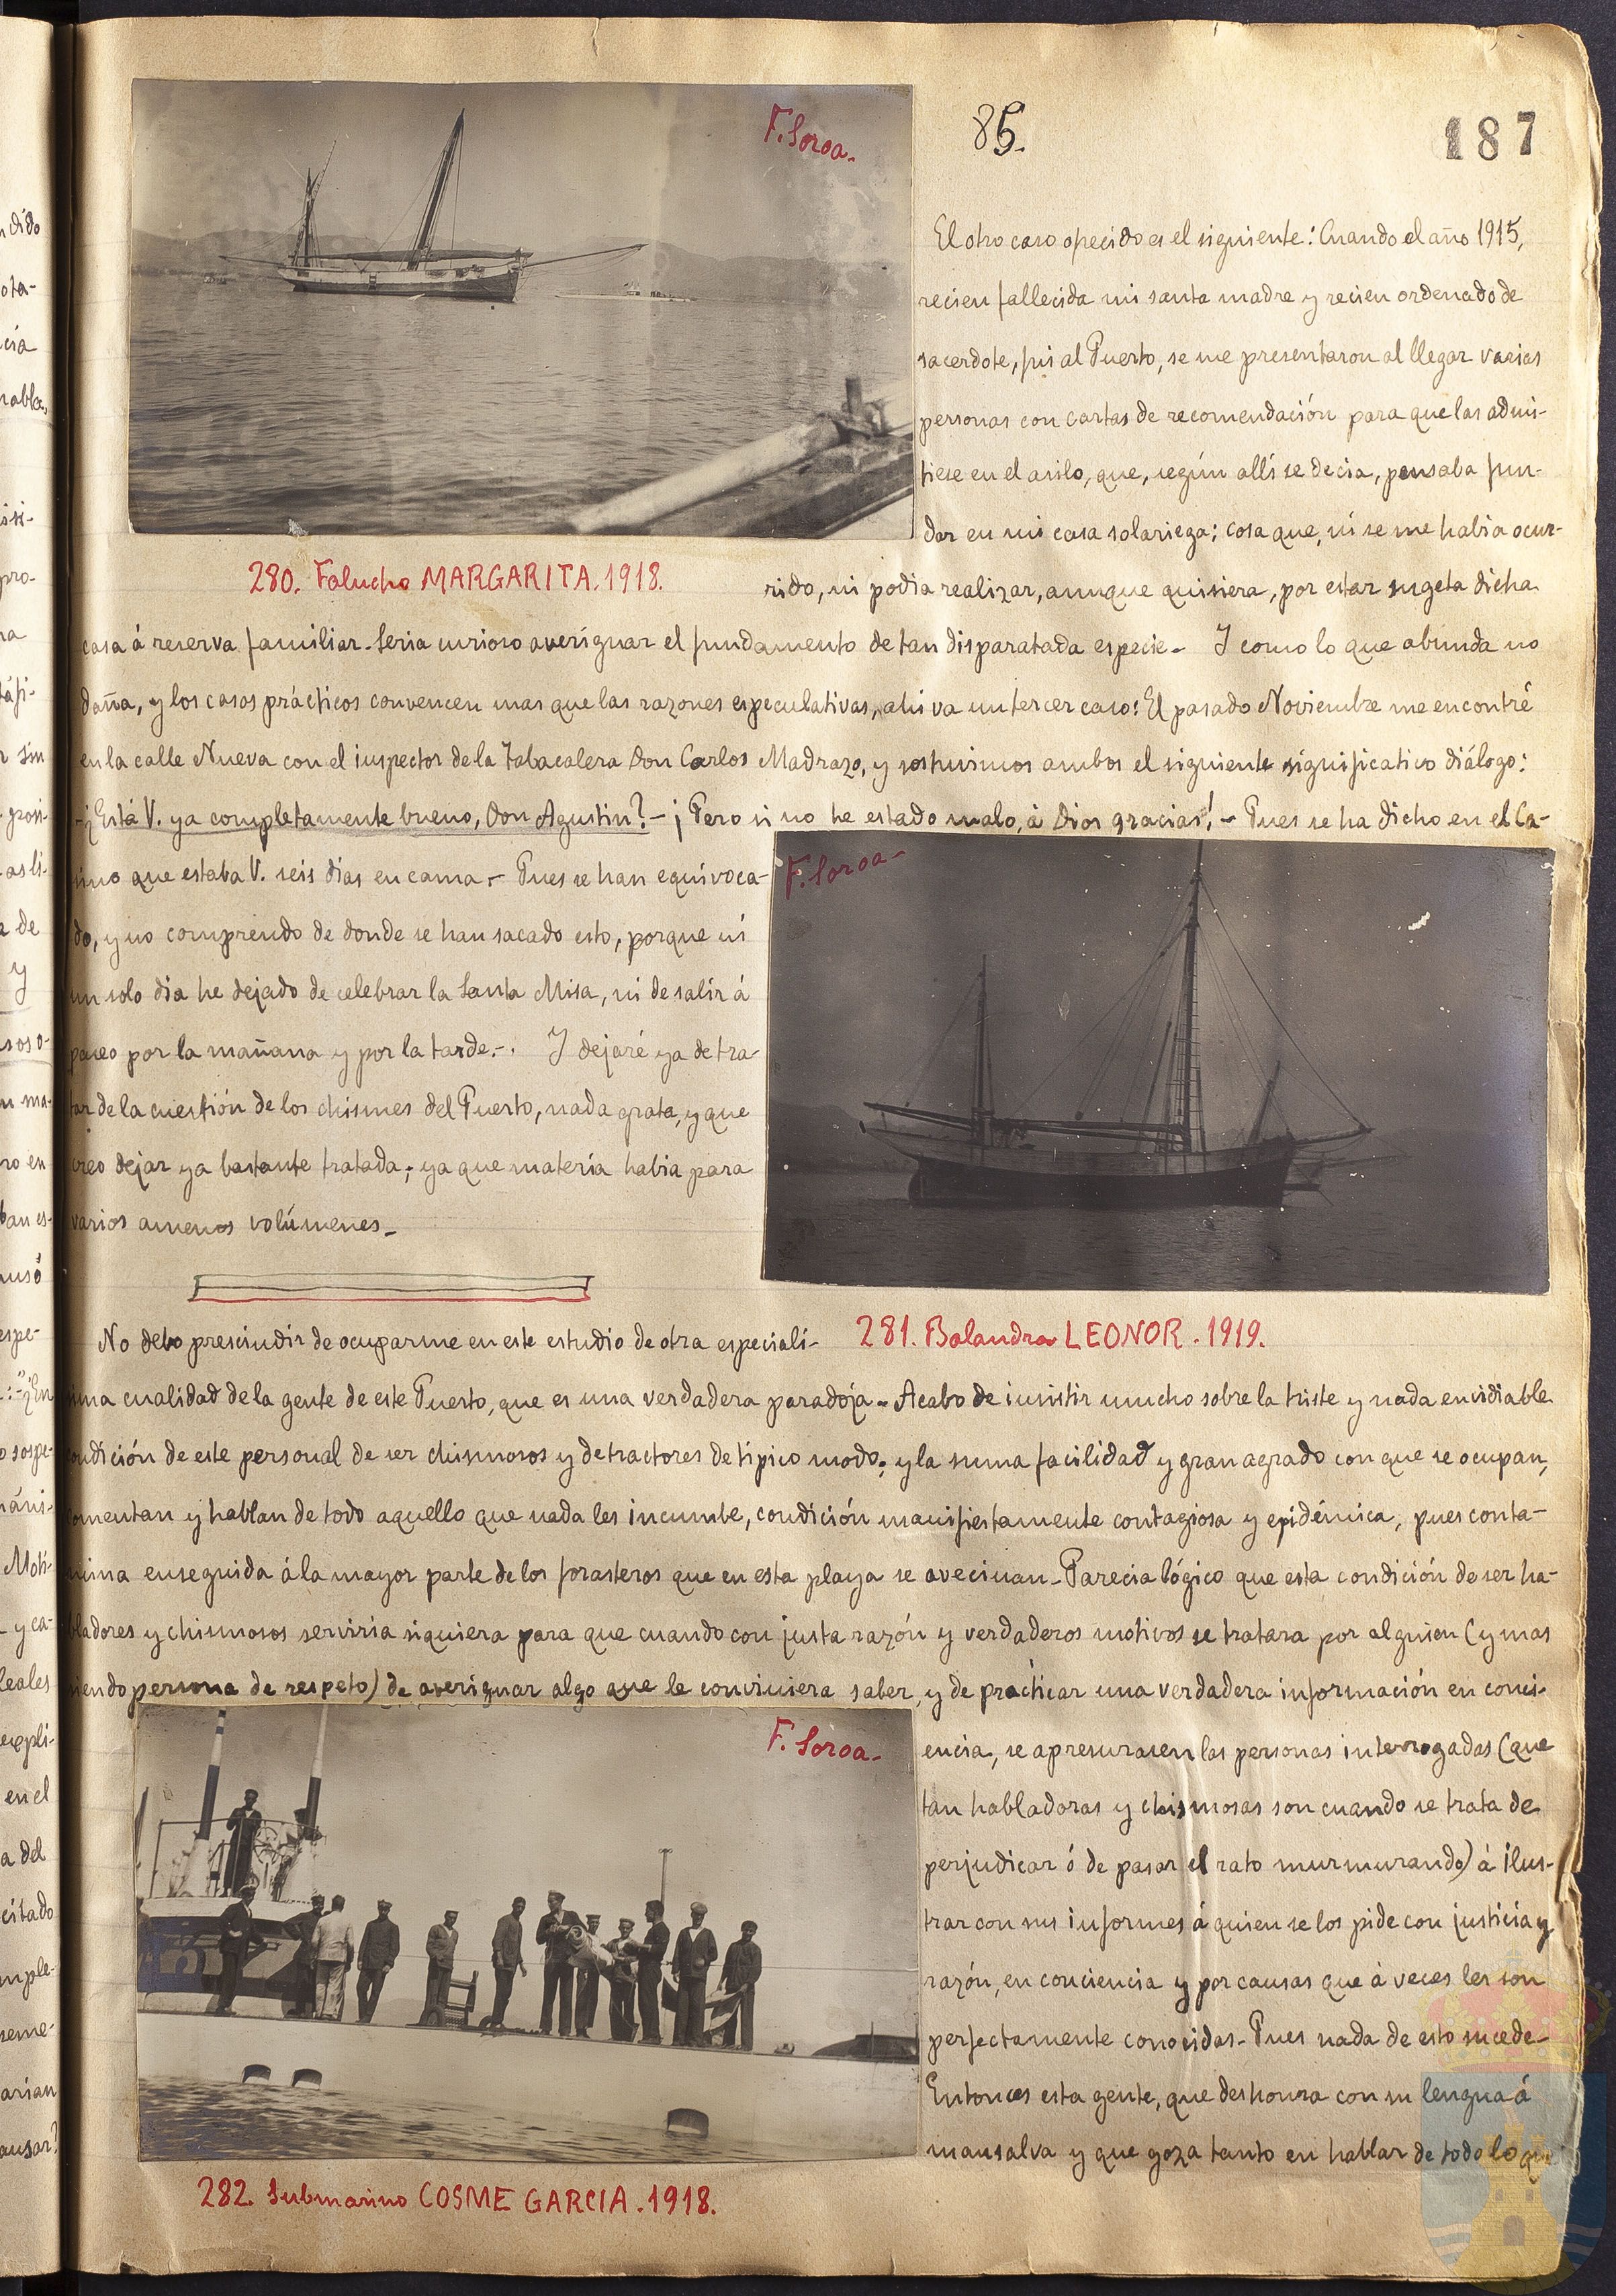 F. Soroa.
85.
187
El otro caso ofrecido es el siguiente: Cuando el año 1915,
recien fallecida mi santa madre y recien ordenado de
sacerdote, fui al Puerto, se me presentaron al llegar varias
personas con cartas de recomendación para que las admi-
tiese en el asilo, que, según allí se decia, pensaba fun-
dar en mi casa solariega; cosa que, ni se me habia ocur-
280. Falucho MARGARITA. 1918.
rido, ni podia realizar, aunque quisiera, por estar sugeta dicha
casa á reserva familiar. Seria curioso averiguar el fundamento de tan disparatada especie. Y como lo que abunda no
daña, y los casos prácticos convencen mas que las razones especulativas, ahi va un tercer caso: El pasado Noviembre me encontré
en la calle Nueva con el inspector de la Tabacalera Don Carlos Madrazo, y sostuvimos ambos el siguiente significativo diálogo:
-¿Está V. ya completamente bueno, Don Agustin? - ¡Pero si no he estado malo, á Dios gracias! - Pues se ha dicho en el Ca-
sino que estaba V. seis dias en cama. - Pues se han equivoca-
do, y no comprendo de donde se han sacado esto, porque ni
un solo dia he dejado de celebrar la Santa Misa, ni de salir á
paseo por la mañana y por la tarde.-. Y dejaré ya de tra-
tar de la cuestión de los chismes del Puerto, nada grata, y que
creo dejar ya bastante tratada; ya que materia habia para
varios amenos volúmenes.
F. Soroa.
281. Balandra LEONOR. 1919.
No debo prescindir de ocuparme en este estudio de otra especiali-
sima cualidad de la gente de este Puerto, que es una verdadera paradoja. Acabo de insistir mucho sobre la triste y nada envidiable
condición de este personal de ser chismosos y detractores de típico modo; y la suma facilidad y gran agrado con que se ocupan,
comentan y hablan de todo aquello que nada les incumbe, condición manifiestamente contagiosa y epidémica, pues conta-
mina enseguida á la mayor parte de los forasteros que en esta playa se avecinan. Parecia lógico que esta condición de ser ha-
bladores y chismosos serviria siquiera para que cuando con justa razón y verdaderos motivos se tratara por alguien (y mas
siendo persona de respeto) de averiguar algo que le conviniera saber, y de practicar una verdadera información en conci-
encia, se apresurasen las personas interrogadas (que
tan habladoras y chismosas son cuando se trata de
perjudicar ó de pasar el rato murmurando) á ilus-
trar con sus informes á quien se los pide con justicia y
razón, en conciencia y por causas que á veces les son
perfectamente conocidas. Pues nada de esto sucede.
Entonces esta gente, que deshonra con su lengua á
mansalva y que goza tanto en hablar de todo lo que
F. Soroa.
282. Submarino COSME GARCIA. 1918.